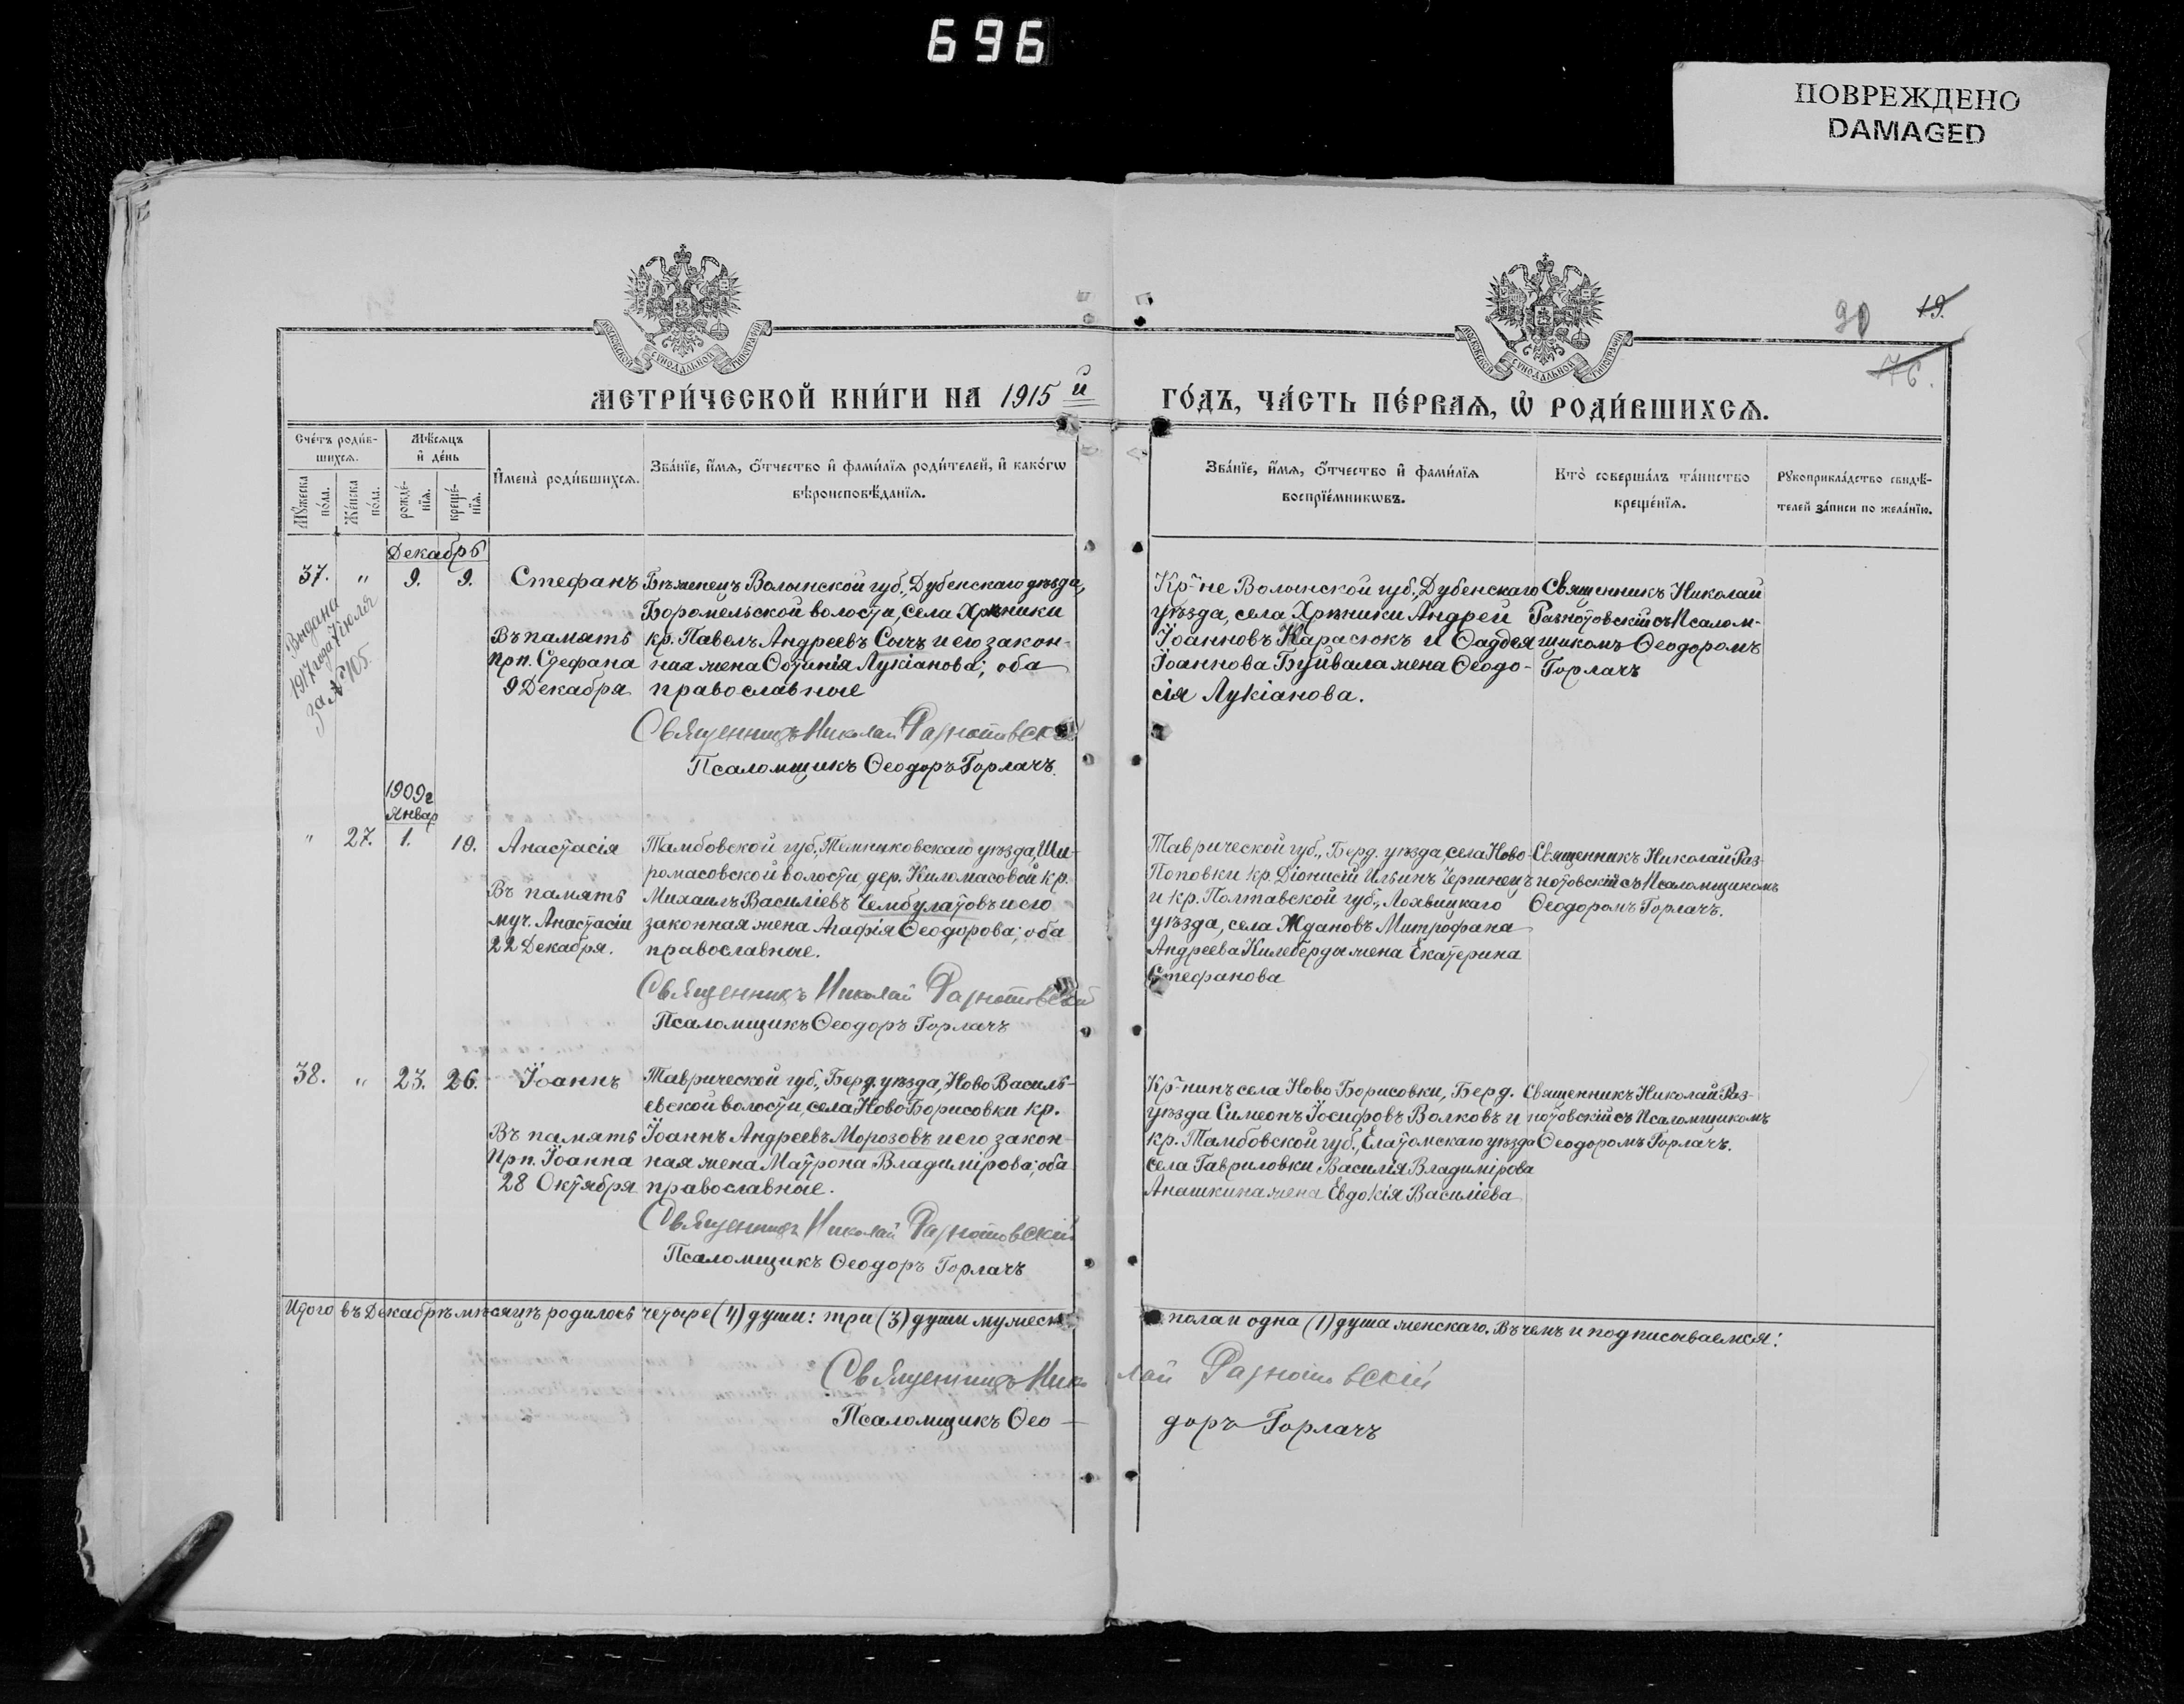 696
ПОВРЕЖДЕНО
DAMAGED
МОСКОВСКОЙ СѴНОДАЛЬНОЙ ТИПОГРАФІИ
МОСКОВСКОЙ СѴНОДАЛЬНОЙ ТИПОГРАФІИ
90
19.
76.
МЕТРИ́ЧЕСКОЙ КНИ́ГИ НА 1915 й
ГО́ДЪ, ЧА́СТЬ ПЕ́РВАѦ, Ѽ РОДИ́ВШИХСѦ.
Сче́тъ роди́в-
шихсѧ.
Мѣ́сѧцъ
и҆ де́нь
Мꙋ́жеска
по́ла.
Же́нска
по́ла.
рожде́-
нїѧ.
креще́-
нїѧ.
И҆мена̀ роди́вшихсѧ.
Зва́нїе, и҆́мѧ, о҆́тчество и҆ фами́лїѧ роди́телей, и҆ како́гѡ
вѣроисповѣ́данїѧ.
Зва́нїе, и҆́мѧ, о҆́тчество и҆ фами́лїѧ
воспрїе́мникѡвъ.
Кто̀ соверша́лъ та́инство
креще́нїѧ.
Рꙋкоприкла́дство свидѣ́-
телей за́писи по жела́нїю.
Декабрь
37. " 9. 9.
Выдана
1917 года 7 іюля
за № 105.
Стефанъ
Въ память
прп. Стефана
9 Декабря
Бѣженецъ Волынской губ., Дубенскаго уѣзда,
Боромельской волости, села Хрѣники
кр. Павелъ Андреевъ Сычъ и его закон-
ная жена Фотинія Лукіанова; оба
православные
Священникъ Николай Разнотовскій
Псаломщикъ Ѳеодоръ Горлачъ.
Кр-не Волынской губ., Дубенскаго
уѣзда, села Хрѣники Андрей
Іоанновъ Карасюкъ и Ѳаддея
Іоаннова Буйвала жена Ѳеодо-
сія Лукіанова.
Священникъ Николай
Разнотовскій съ Псалом-
щикомъ Ѳеодоромъ
Горлачъ
1909 г
Январ
" 27. 1. 19.
Анастасія
Въ память
муч. Анастасіи
22 Декабря.
Тамбовской губ., Темниковскаго уѣзда, Ши-
ромасовской волости, дер. Киломасовой кр.
Михаилъ Василіевъ Чембулатовъ и его
законная жена Агафія Ѳеодорова; оба
православные.
Священникъ Николай Разнотовскій
Псаломщикъ Ѳеодоръ Горлачъ
Таврической губ., Берд. уѣзда, села Ново-
Поповки кр. Діонисій Ильинъ Чергинецъ
и кр. Полтавской губ., Лохвицкаго
уѣзда, села Ждановъ Митрофана
Андреева Килеберды жена Екатерина
Стефанова
Священникъ Николай Раз-
нотовскій съ Псаломщикомъ
Ѳеодоромъ Горлачъ.
38. " 23. 26.
Іоаннъ
Въ память
прп. Іоанна
28 Октября
Таврической губ., Берд. уѣзда, Ново Василь-
евской волости, села Ново Борисовки кр.
Іоаннъ Андреевъ Морозовъ и его закон-
ная жена Матрона Владимірова; оба
православные.
Священникъ Николай Разнотовскій
Псаломщикъ Ѳеодоръ Горлачъ
Кр-нинъ села Ново Борисовки, Берд.
уѣзда Симеонъ Іосифовъ Волковъ и
кр. Тамбовской губ., Елатомскаго уѣзда
села Гавриловки Василія Владимірова
Анашкина жена Евдокія Василіева
Священникъ Николай Раз-
нотовскій съ Псаломщикомъ
Ѳеодоромъ Горлачъ.
Итого въ Декабрѣ мѣсяцѣ родилось четыре (4) души: три (3) души мужеск пола и одна (1) душа женскаго. Въ чемъ и подписываемся:
Священникъ Николай Разнотовскій
Псаломщикъ Ѳео- доръ Горлачъ